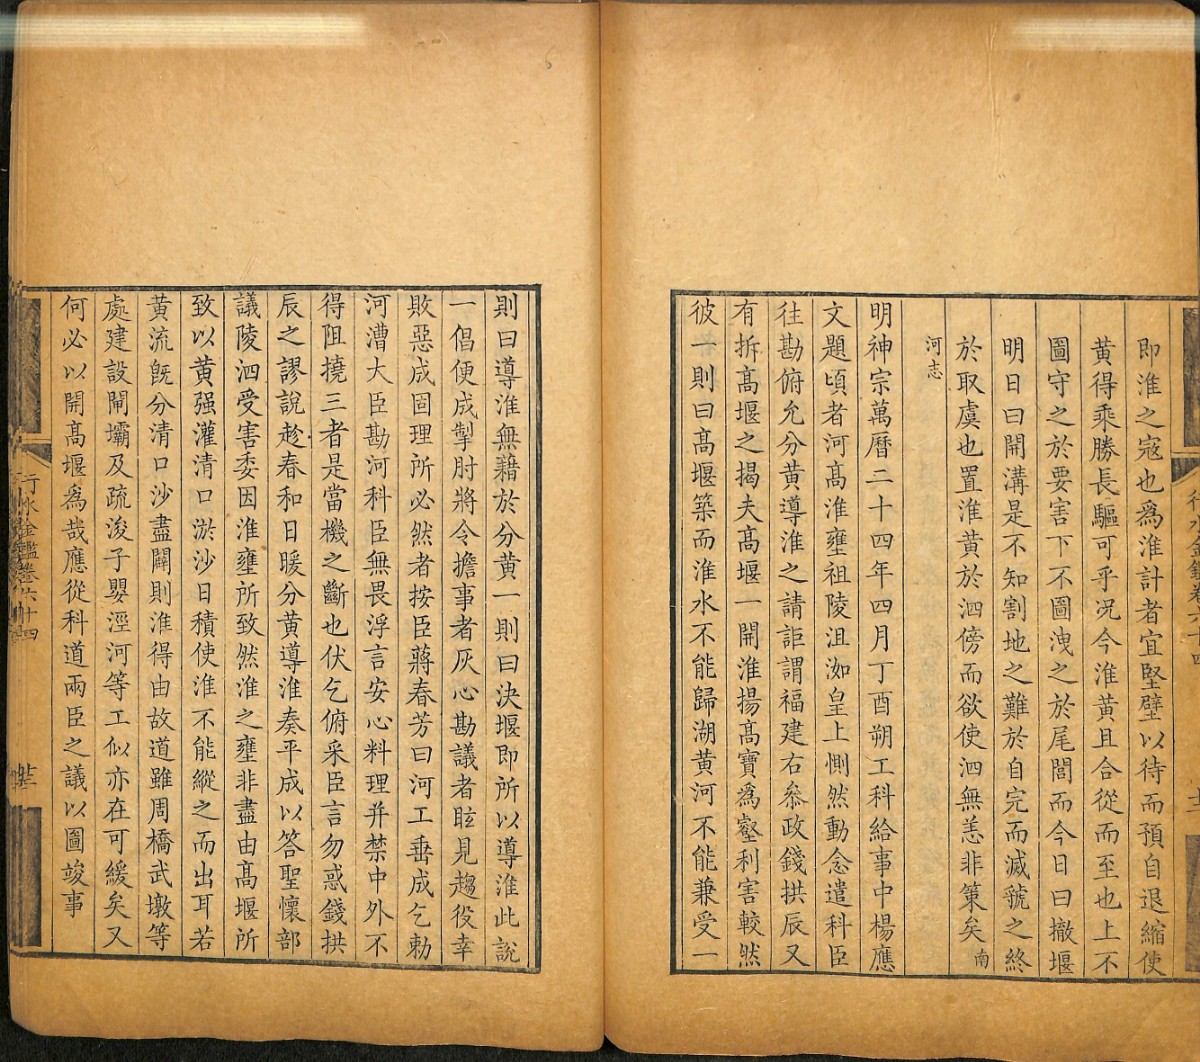 即淮之寇也為淮計者宜堅壁以待而預自退縮使
黃得乘勝長驅可乎况今淮黃且合從而至也上不
圖守之於要害下不圖洩之於尾閭而今日曰撤堰
明日曰開溝是不知割地之難於自完而滅虢之終
於取虞也置淮黃於泗傍而欲使泗無恙非策矣南
河志
明神宗萬曆二十四年四月丁酉朔工科給事中楊應
文題頃者河高淮壅祖陵沮洳皇上惻然動念遣科臣
往勘俯允分黃導淮之請詎謂福建右叅政錢拱辰又
有拆高堰之揭夫高堰一開淮揚高寶為壑利害較然
彼一則曰高堰築而淮水不能歸湖黃河不能兼受一
則曰導淮無藉於分黃一則曰決堰即所以導淮此說
一倡便成掣肘將令擔事者灰心勘議者眩見趨役幸
敗惡成固理所必然者按臣蔣春芳曰河工垂成乞勅
河漕大臣勘河科臣無畏浮言安心料理并禁中外不
得阻撓三者是當機之斷也伏乞俯采臣言勿惑錢拱
辰之謬說趁春和日暖分黃導淮奏平成以答聖懷部
議陵泗受害委因淮壅所致然淮之壅非盡由高堰所
致以黃强灌清口淤沙日積使淮不能縱之而出耳若
黃流旣分清口沙盡闢則淮得由故道雖周橋武墩等
處建設閘壩及疏浚子嬰涇河等工似亦在可緩矣又
何必以開高堰為哉應從科道兩臣之議以圖竣事
行水金鑑卷六十四